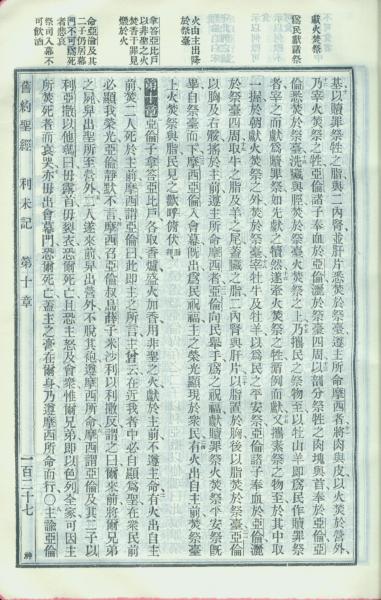 獻火焚祭
爲民獻諸祭
火由主出降
於祭臺
拿答亞比戶
以非聖之火
焚香干罪見
燬於火
命亞倫及其
二子仍居幕
門不可爲死
者悲哀
祭司入幕不
可飲酒
基以贖罪祭牲之脂與二內腎並肝片悉焚於祭臺遵主所命摩西者將肉與皮以火焚於營外
乃宰火焚祭之牲亞倫諸子奉血於亞倫灑於祭臺四周以剖分祭牲之肉塊與首奉於亞倫亞
倫悉焚於祭臺洗臟與脛焚於祭臺火焚祭之上乃攜民之祭物至以牡山羊即爲民作贖罪祭
者宰之而獻爲贖罪祭如先獻之犢然遂牽火焚祭之牲循例而獻又攜素祭之物至於其中取
一握於朝獻火焚祭之外焚於祭臺宰牡牛及牡羊以爲民之平安祭亞倫諸子奉血於亞倫灑
於祭臺四周取牛之脂及羊之尾蓋臟之脂二內腎與肝片以脂置於胸後以脂焚於祭臺亞倫
以胸及右骽搖於主前遵主所命摩西者亞倫向民舉手爲之祝福獻贖罪祭火焚祭平安祭旣
畢自祭臺而下摩西亞倫入會幕旣出爲民祝福主之榮光顯現於衆民有火出自主前焚祭臺
上火焚祭與脂民見之歡呼俯伏
第十章 亞倫子拿答亞比戶各取香爐盛火加香用非聖之火獻於主前不遵主命有火出自主
前焚二人死於主前摩西謂亞倫曰此即主之所言主曾云在近我者中必自顯爲聖在衆民前
必顯我榮光亞倫靜默不言摩西召亞倫叔烏薛子米沙利以利撒反謂之曰爾來前將爾兄弟
之屍舁出聖所至營外二人遂來前舁出營外不脫其袍遵摩西所命摩西謂亞倫及其二子以
利亞撒以他瑪曰毋露首毋裂衣恐爾死亡且主怒及會衆惟爾兄弟即以色列全家可因主
所焚死者而哀哭亦毋出會幕門恐爾死亡蓋主之膏在爾身乃遵摩西所命而行〇主諭亞倫
舊約聖經 利未記 第十章 一百二十七 神